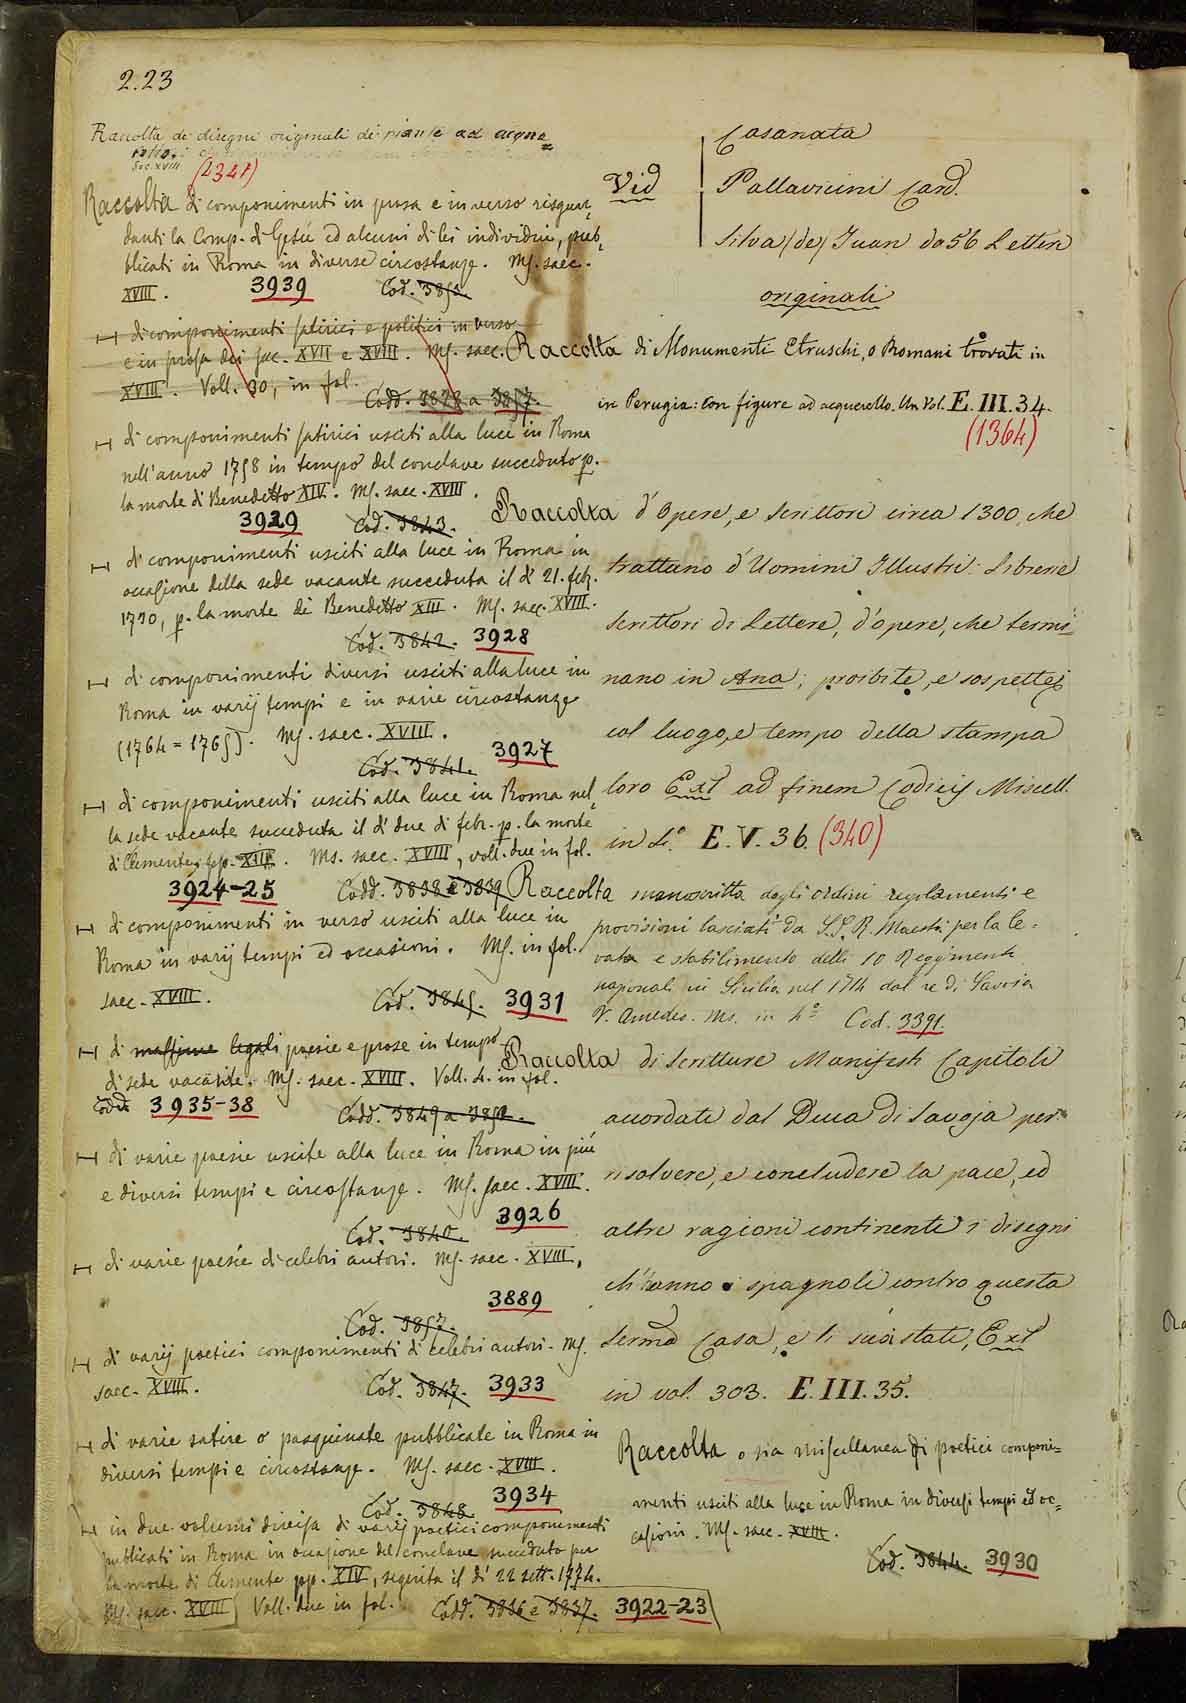 2.23
Raccolta di disegni originali di piante ad acqua=
Sec. XVIII (4341)
Raccolta di componimenti in prosa e in verso risguar,
danti la Comp. di Gesù ed alcuni di lei individui, pub,
blicati in Roma in diverse circostanze. Ms. saec.
XVIII. 3939 Cod. 3853.
di componimenti satirici e politici in verso
e in prosa dei saec. XVII e XVIII. Ms. saec.
XVIII. Voll. 30, in fol.
Codd. 3828 a 3857.
di componimenti satirici usciti alla luce in Roma
nell'anno 1758 in tempo del conclave succeduto p.
la morte di Benedetto XIV. Ms. saec. XVIII.
3929 Cod. 3843.
di componimenti usciti alla luce in Roma in
occasione della sede vacante succeduta il dì 21. febr.
1730, p. la morte di Benedetto XIII. Ms. saec. XVIII.
Cod. 3842. 3928
di componimenti diversi usciti alla luce in
Roma in varij tempi e in varie circostanze
(1764=1765). Ms. saec. XVIII.
Cod. 3841. 3927
di componimenti usciti alla luce in Roma nel,
la sede vacante succeduta il dì due di febr. p. la morte
di Clemente pp. XIII. Ms. saec. XVIII, voll. due in fol.
3924-25 Codd. 3838 e 3839
di componimenti in verso usciti alla luce in
Roma in varij tempi ed occasioni. Ms. in fol.
saec. XVIII. Cod. 3845. 3931
di massime legali poesie e prose in tempo
di sede vacante. Ms. saec. XVIII. Voll. 4. in fol.
Codd. 3935-38 Codd. 3849 a 3852.
di varie poesie uscite alla luce in Roma in più
e diversi tempi e circostanze. Ms. saec. XVIII.
Cod. 3840. 3926
di varie poesie di celebri autori. Ms. saec. XVIII.
3889
Cod. 3857.
di varij poetici componimenti di celebri autori. Ms.
saec. XVIII. Cod. 3847. 3933
di varie satire o pasquinate pubblicate in Roma in
diversi tempi e circostanze. Ms. saec. XVIII.
Cod. 3848 3934
in due volumi divisa di varij poetici componimenti
pubblicati in Roma in occasione del conclave succeduto per
la morte di Clemente pp. XIV, seguita il dì 22 sett. 1774.
Ms. saec. XVIII Voll. due in fol. Codd. 3836 e 3837. 3922-23
Casanata
Vid Pallavicini Card.
Silva (de) Juan da 56 Lettere
originali
Raccolta di Monumenti Etruschi, o Romani trovati in
in Perugia: con figure ad acquerello. Un Vol. E. III. 34.
(1364)
Raccolta d'Opere, e Scrittori circa 1300, che
trattano d'Uomini Illustri: Librerie
Scrittori di Lettere, d'opere, che termi=
nano in Ana; proibite, e sospette;
col luogo, e tempo della stampa
loro Ext ad finem Codicis Miscell.
in 4.° E. V. 36. (340)
Raccolta manoscritta degli ordini regolamenti e
provisioni lasciati da S.S.R. Maestà per la le=
vata e stabilimento delli 10 Reggimenti
nazionali in Sicilia nel 1714 dal re di Savoia
V. Amedeo. Ms. in 4° Cod. 3391.
Raccolta di Scritture Manifesti Capitoli
accordati dal Duca di Savoja per
risolvere, e concludere la pace, ed
altre ragioni continenti i disegni
ch'hanno i spagnoli contro questa
Serma Casa, e li suoi stati, Ext
in vol. 303. E. III. 35.
Raccolta o sia miscellanea di poetici componi=
menti usciti alla luce in Roma in diversi tempi ed oc=
casioni. Ms. saec. XVIII.
Cod. 3844. 3930